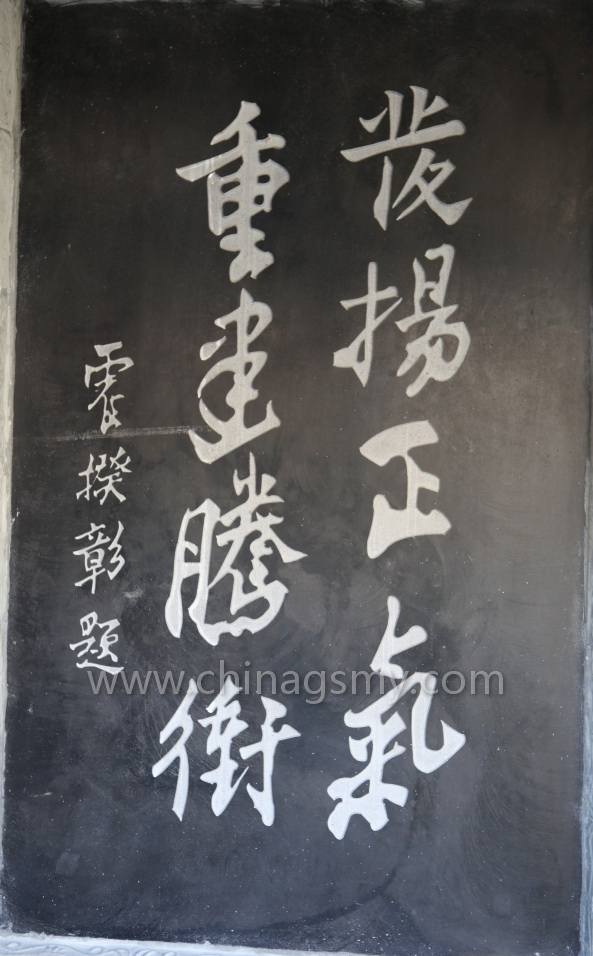 發揚正氣
重建騰衝
霍揆彰題
www.chinagsmy.com